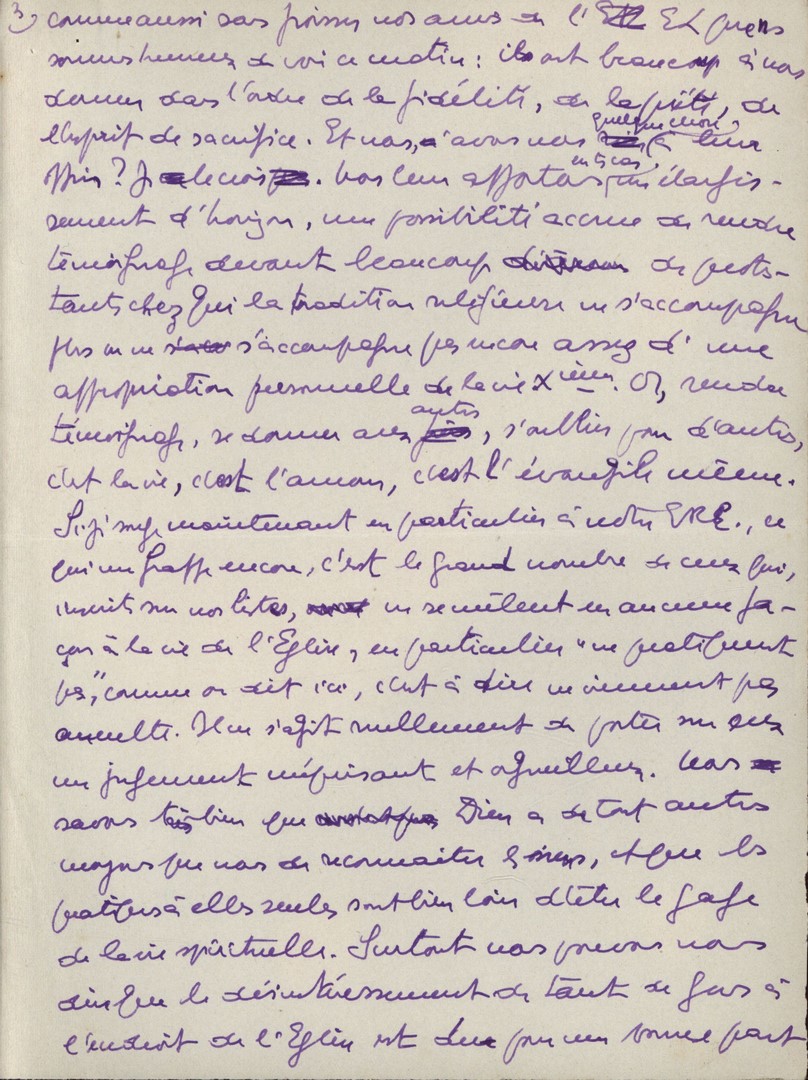 3) comme aussi sans froisser nos amis de l'E EL que ns
sommes heureux de voir ce matin : ils ont beaucoup à nous
donner dans l'ordre de la fidélité, de la piété, de
l'esprit de sacrifice. Et nous, n'avons nous quelque chose à leur
offrir ? Je le crois. Nous leur apportons, en tt cas, un élargis-
sement d'horizon, une possibilité accrue de rendre
témoignage devant beaucoup de protes-
tants chez qui la tradition religieuse ne s'accompagne
plus ou ne s'accompagne pas encore assez d'une
appropriation personnelle de la vie Xienne. Or, rendre
témoignage, se donner aux autres, s'oublier pour d'autres,
c'est la vie, c'est l'amour, c'est l'évangile même.
Si j'songe maintenant en particulier à notre ERE., ce
qui me frappe encore, c'est le grand nombre de ceux qui,
inscrits sur nos listes, ne se mêlent en aucune fa-
çon à la vie de l'Eglise, en particulier "ne pratiquent
pas", comme on dit ici, c'est à dire ne viennent pas
au culte. Il ne s'agit nullement de porter sur eux
un jugement méprisant et orgueilleux. Nous
savons très bien que Dieu a de tout autres
moyens que nous de reconnaître les siens, et que les
pratiques à elles seules sont bien loin d'être le gage
de la vie spirituelle. Surtout nous pouvons nous
dire que le désintéressement de tant de gens à
l'endroit de l'Eglise est due pour une bonne part